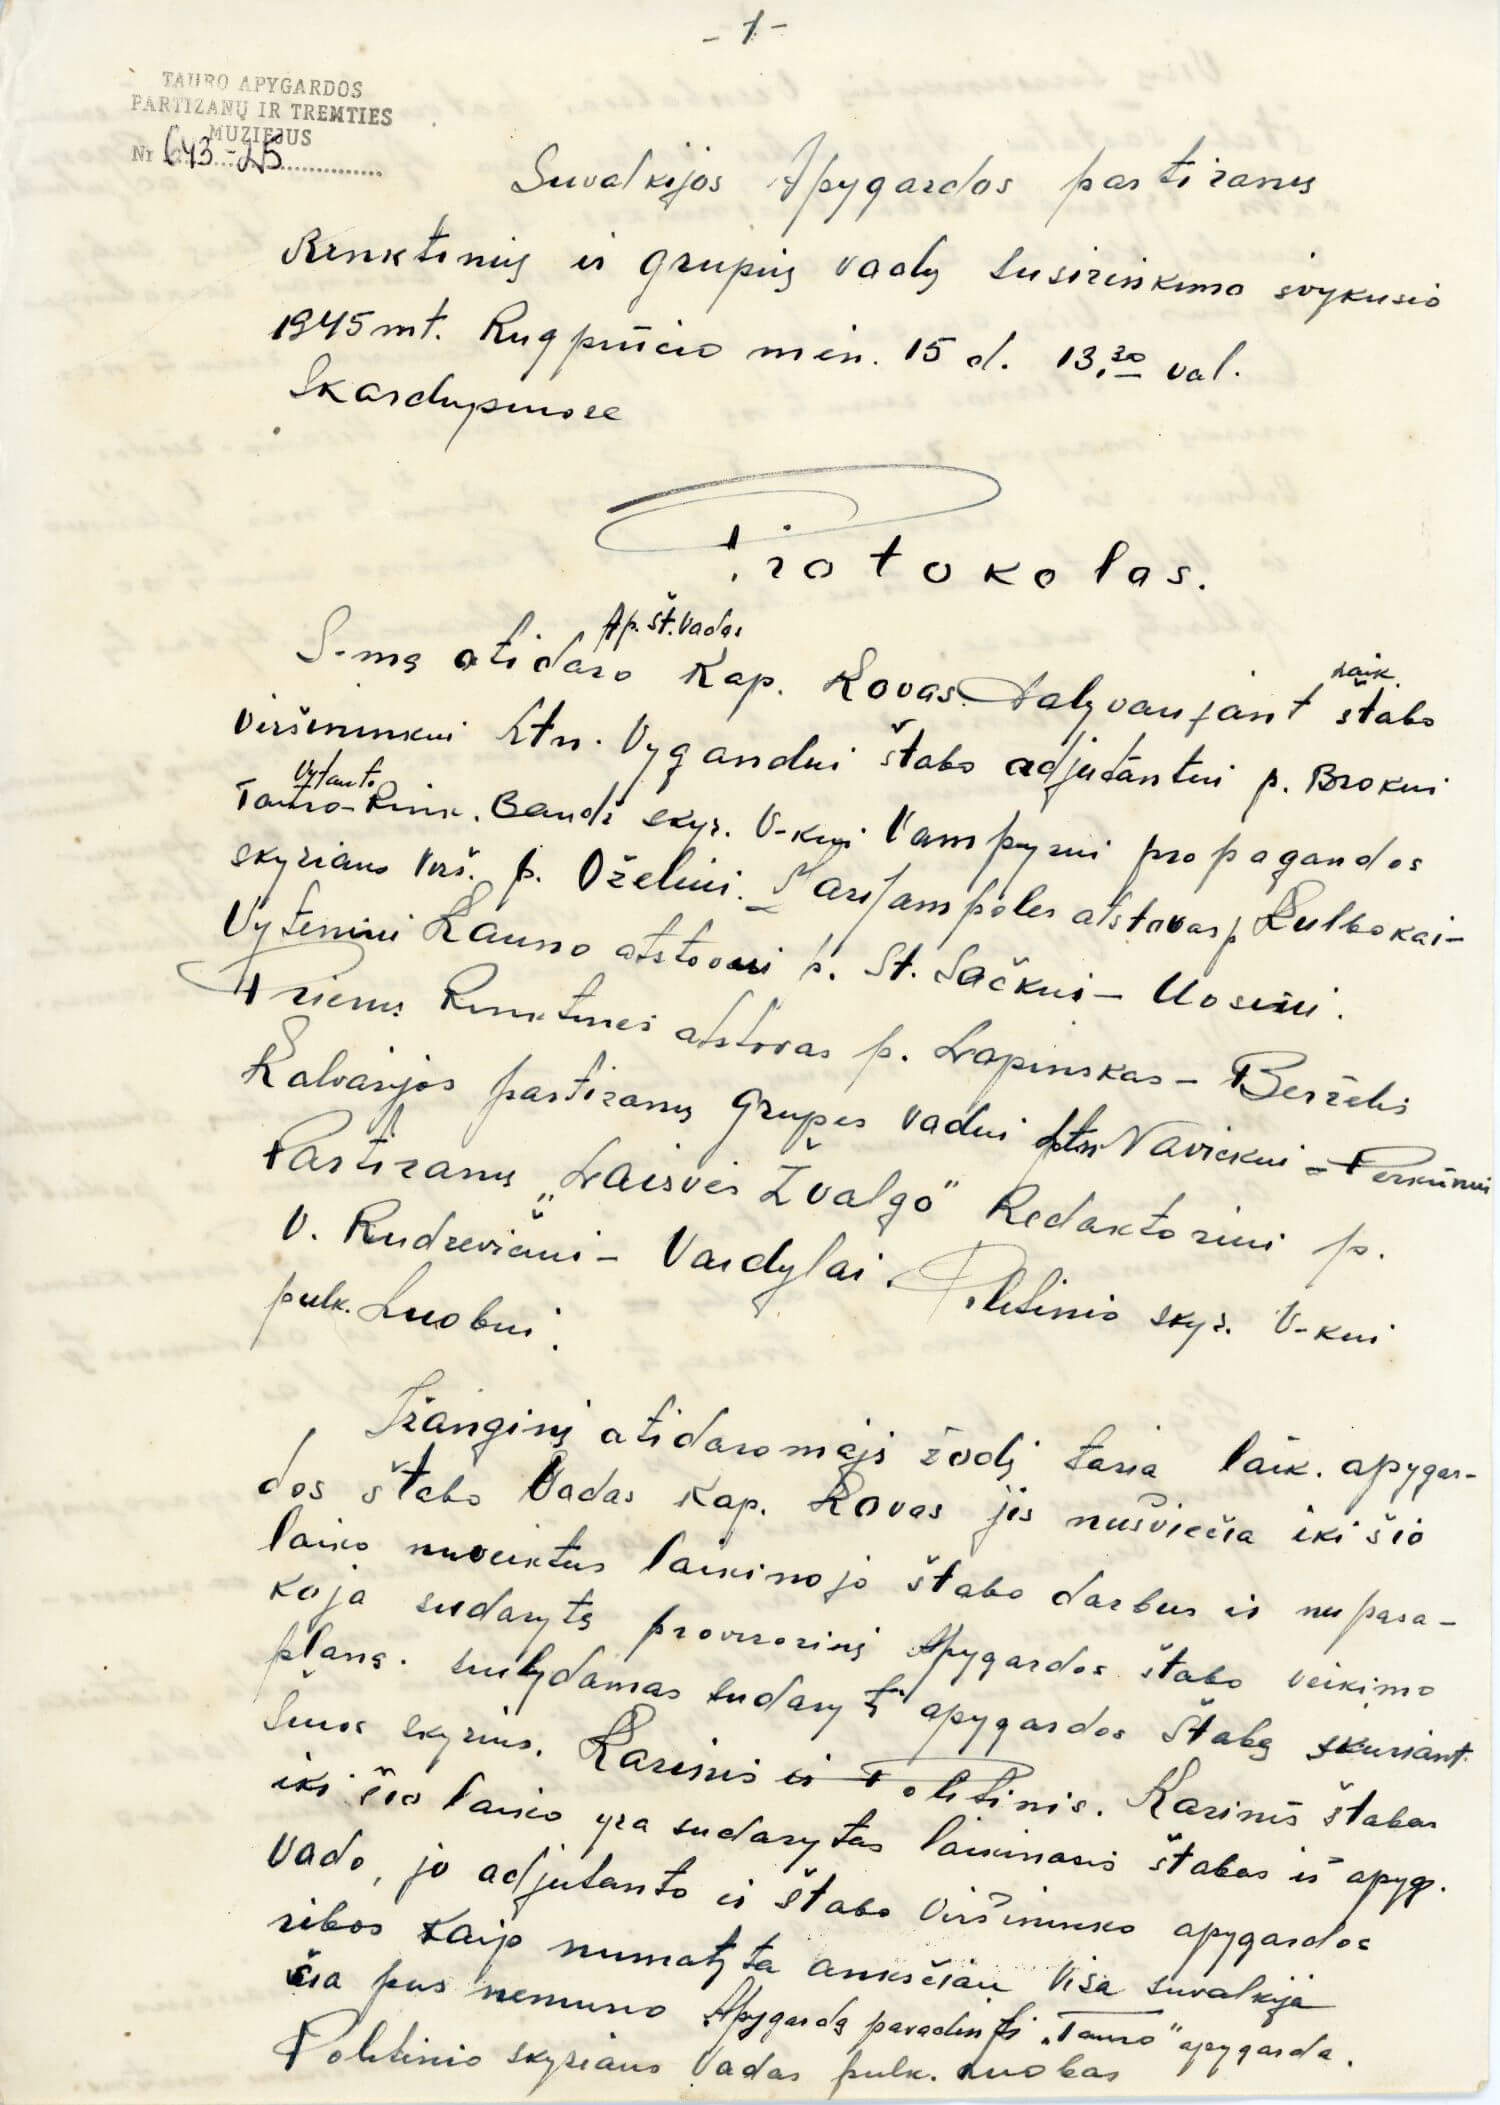 - 1 -
TAURO APYGARDOS
PARTIZANŲ IR TREMTIES
MUZIEJUS
Nr 643-25
Suvalkijos Apygardos partizanų
Rinktinių ir grupių vadų susirinkimo įvykusio
1945 mt. Rugpiučio mėn. 15 d. 13.30 val.
Skardupiuose
Protokolas.
Ap. št. Vadas
S-mą atidaro Kap. Kovas. Dalyvaujant laik. štabo
Viršininkui Ltn. Vygandui štabo adjutantui p. Brokui
Vytauto
Tauro Rink. Baudž skyr. V-kui Vampyrui propagandos
skyriaus Virš. p. Oželiui. Marijampolės atstovas p. Kulbokai-
Vyteniui Kauno atstovui p. St. Sačkui - Uosiui.
Prienų Rinktinės atstovas p. Lapinskas - Berželis
Kalvarijos partizanų grupės vadui Ltn Navickui - Perkūnui
Partizanų „Laisvės Žvalgo" Redaktoriui p.
V. Rudzevičiui - Vaidylai. Politinio skyr. V-kui
pulk. Luobui.
Įžanginį atidaromąjį žodį taria laik. apygar-
dos štabo Vadas Kap. Kovas jis nušviečia iki šio
laiko nuveiktus laikinojo štabo darbus ir nupasa-
koja sudarytą provizorinį Apygardos štabo veikimo
planą. siulydamas sudaryti apygardos štabą skiriant
šiuos skyrius. Karinis ir Politinis. Karinis štabas
iki šio laiko yra sudarytas laikinasis štabas iš apyg.
Vado, jo adjutanto ir štabo Viršininko apygardos
ribos kaip numatyta anksčiau Visa suvalkija
šia pus nemuno Apygardą pavadinti „Tauro" apygarda.
Politinio skyriaus Vadas pulk. Luobas